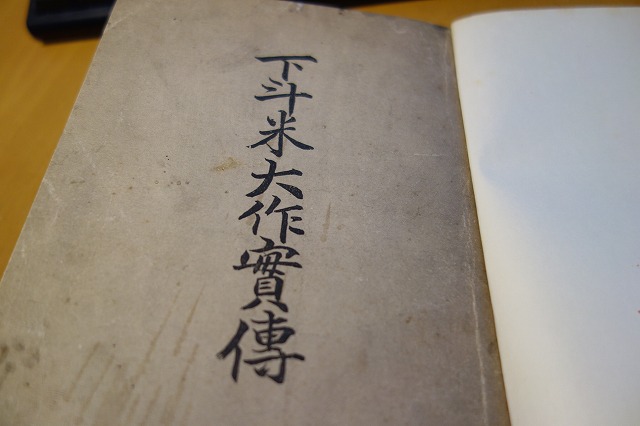 下斗米大作實傳